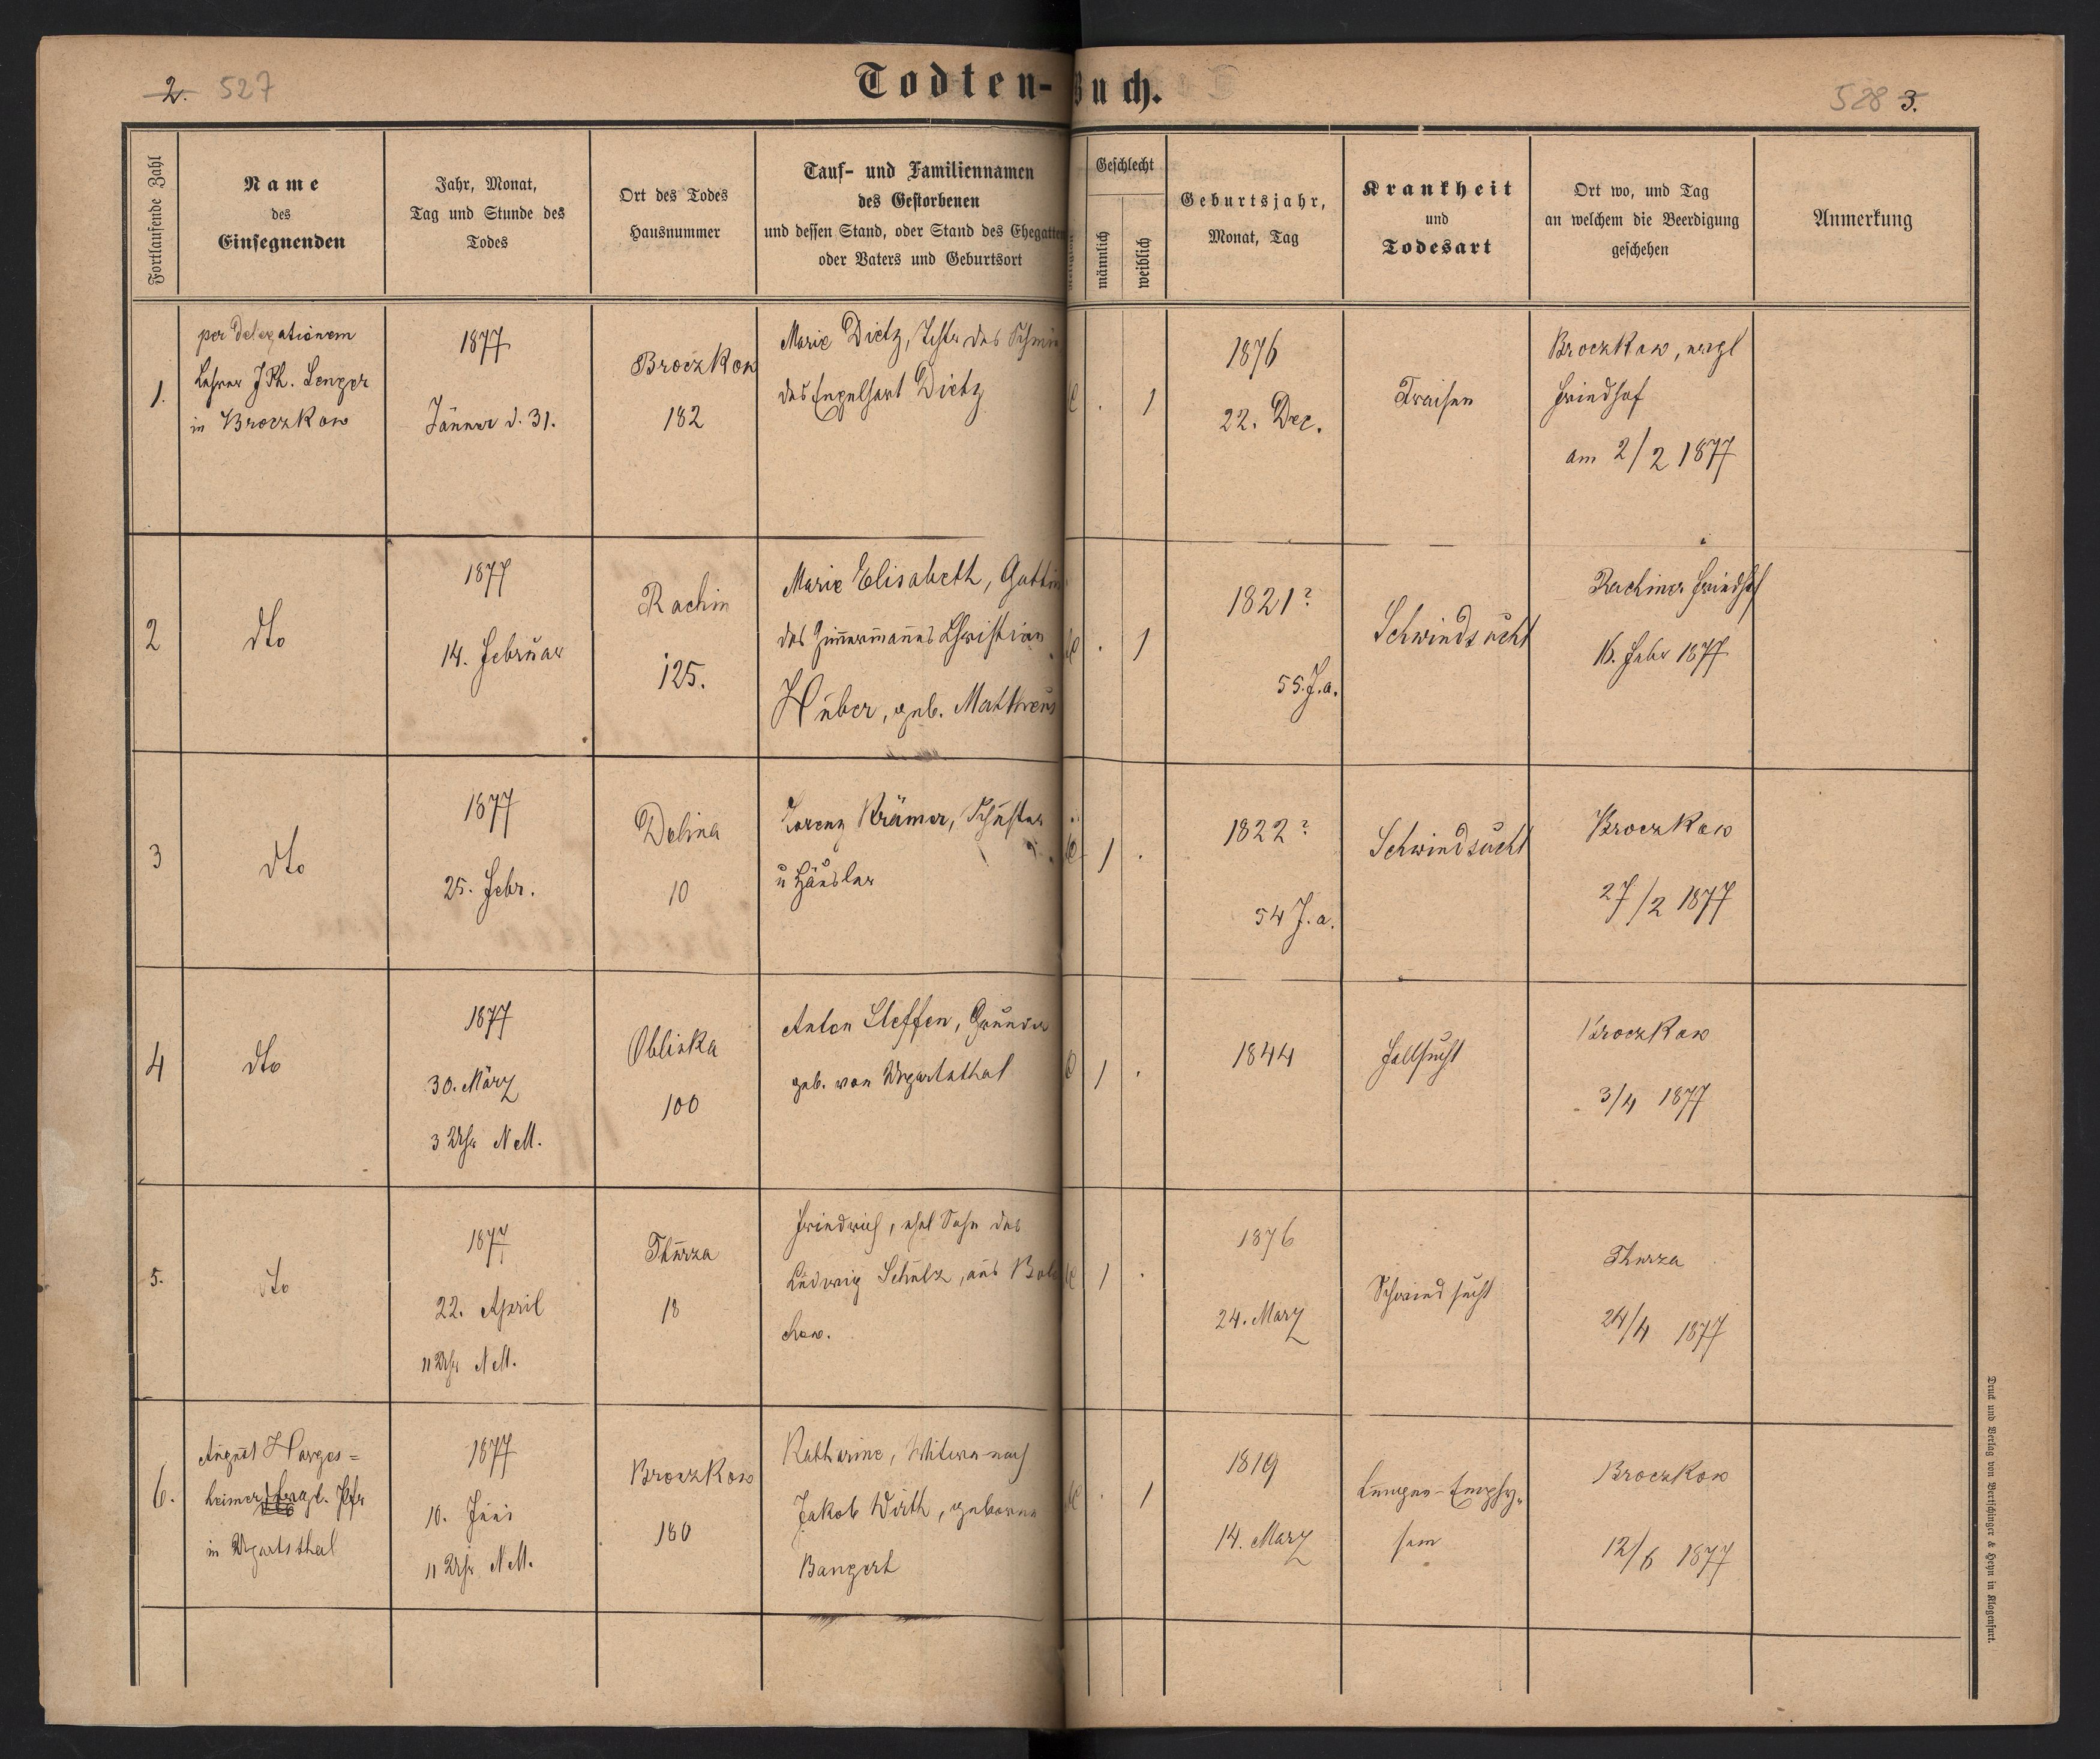 2. 527
Todten-Buch.
528 3.
Fortlaufende Zahl
Name
des
Einsegnenden
Jahr, Monat,
Tag und Stunde des
Todes
Ort des Todes
Hausnummer
Tauf- und Familiennamen
des Gestorbenen
und dessen Stand, oder Stand des Ehegatten
oder Vaters und Geburtsort
Geschlecht
männlich
weiblich
Geburtsjahr,
Monat, Tag
Krankheit
und
Todesart
Ort wo, und Tag
an welchem die Beerdigung
geschehen
Anmerkung
1.
per delegationem
Lehrer J Ph. Senger
in Broczkow
1877
Jänner d. 31.
Broczkow
182
Marie Dietz, Tchtr des
des Engelhart Dietz
. 1
1876
22. Dec.
Fraisen
Broczkow, evgl
Friedhof
am 2/2 1877
2
dto
1877
14. Februar
Rachin
125.
Marie Elisabeth, Gattin
des Zimmermannes Christian
Huber, geb.
. 1
1821?
55. J. a.
Schwindsucht
Rachiner Friedhof
16. Febr 1877
3
dto
1877
25. Febr.
Dolina
10
Lorenz Krämer, Schuster
u Häusler
1 .
1822?
54 J. a.
Schwindsucht
Broczkow
27/2 1877
4
dto
1877
30. März
3 Uhr NM.
Obliska
100
Anton Steffen,
geb. von Ugartsthal
1 .
1844
Fallsucht
Broczkow
3/4 1877
5.
dto
1877
22. April
11 Uhr NM.
Thurza
18
Friedrich, ehel Sohn des
Ludwig Schulz, aus Bole
chow.
1 .
1876
24. März
Schwindsucht
Thurza
24/4 1877
6.
August Harges=
heimer evgl. Pfr
in Ugartsthal
1877
10. Juni
11 Uhr NM.
Broczkow
180
Katharine, Witwe nach
Jakob Wirth, geborne
Bangert
. 1
1819
14. März
Lungen-Emphy„
sem
Broczkow
12/6 1877
Druck und Verlag von Bertschinger & Heyn in Klagenfurt.